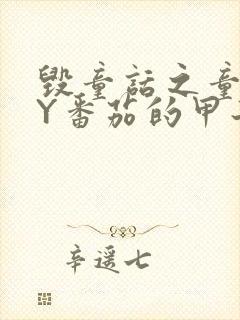 毁童话之童
Y番茄的甲
辛遥七